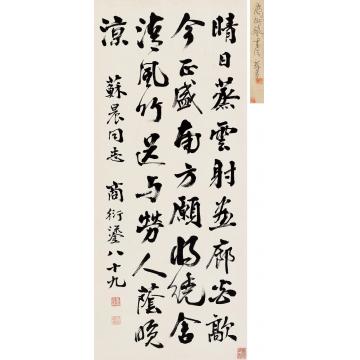 晴日蒸雲射画廊炎歊
今正盛南方願將繞舍
清風竹送与勞人蔭晚
涼
蘇晨同志 商衍鎏八十九